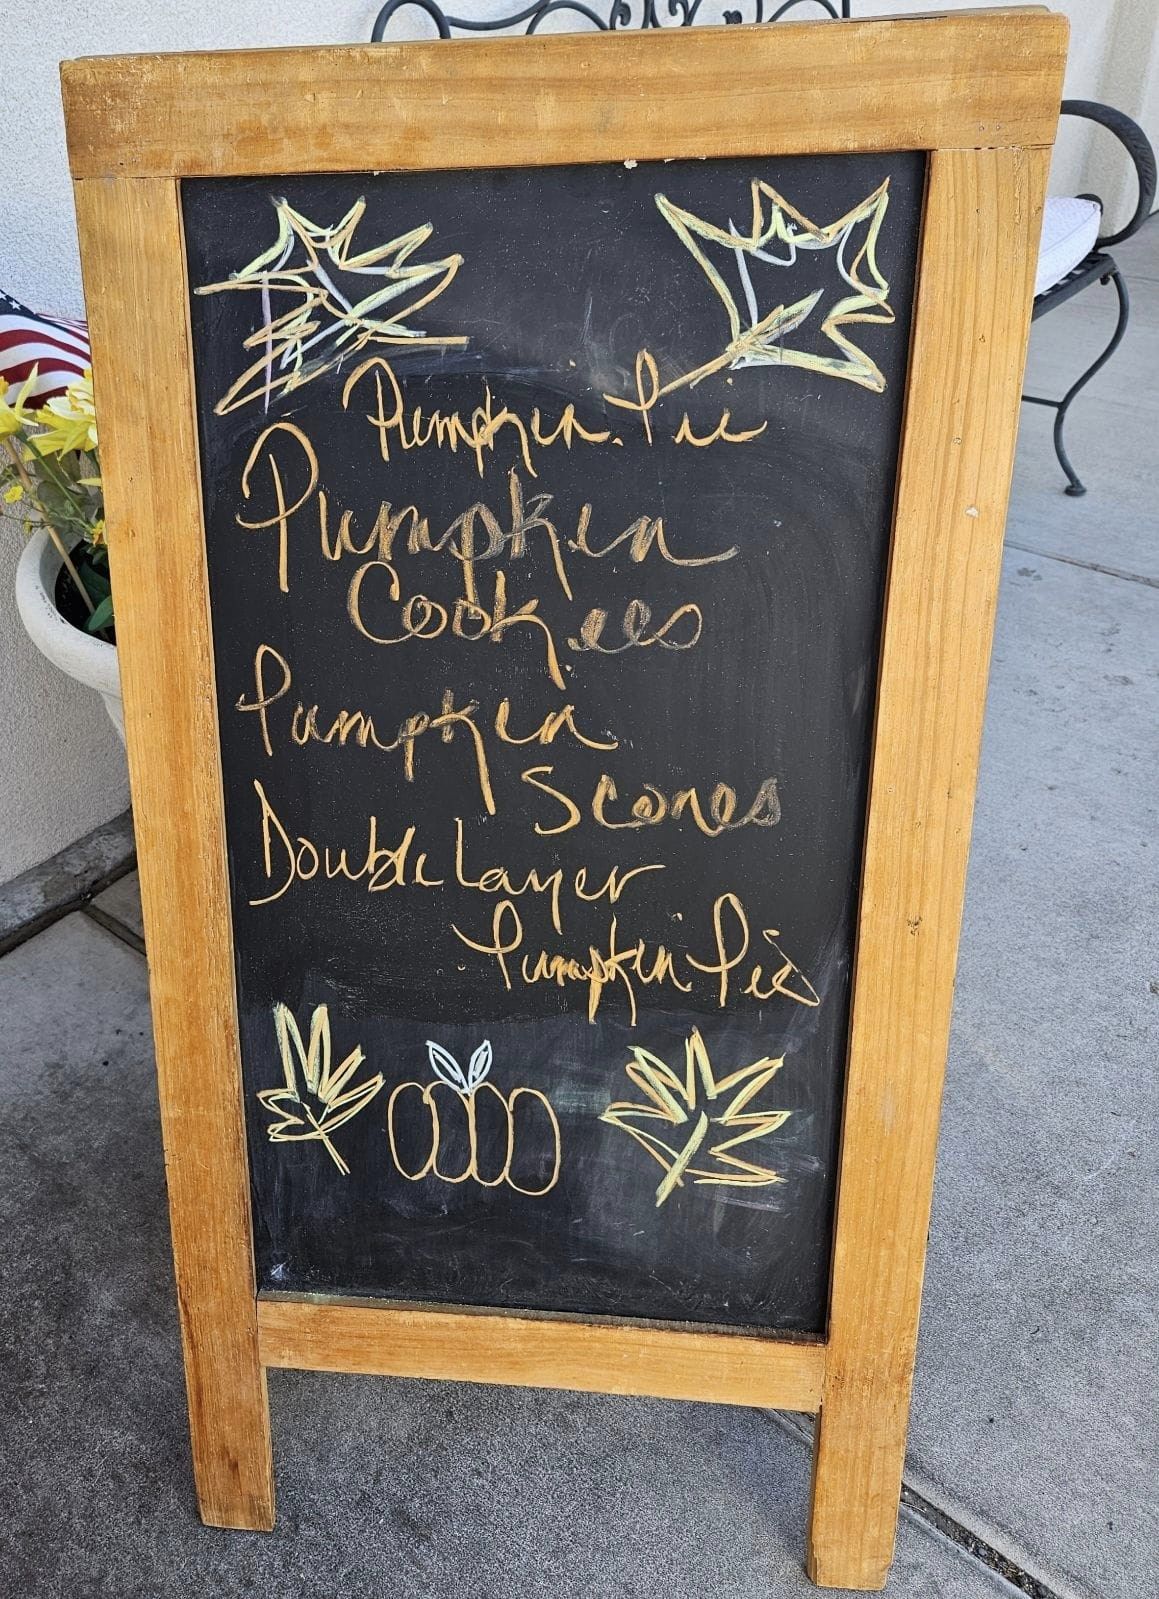 Pumpkin Pie
Pumpkin
Cookies
Pumpkin
Scones
Double Layer
Pumpkin Pie